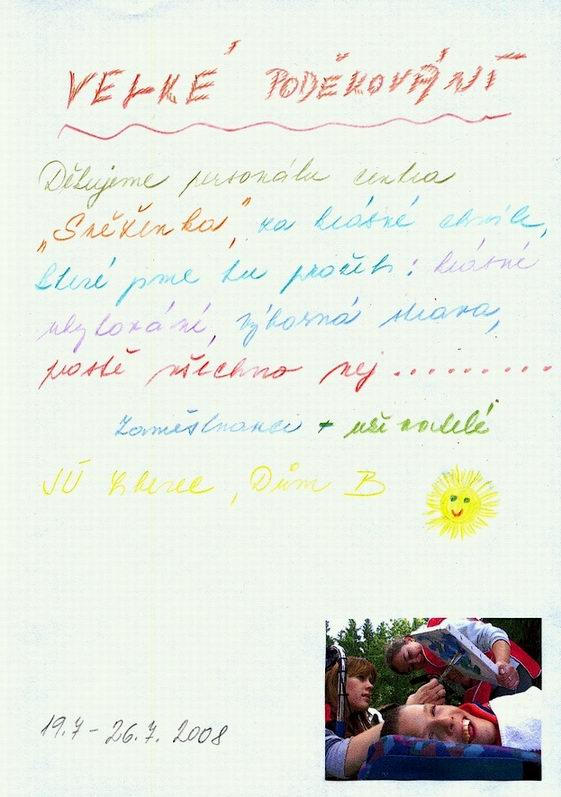 VELKÉ PODĚKOVÁNÍ
Děkujeme personálu centra
„Sněženka", za krásné chvíle,
které jsme tu prožili: krásné
ubytování, výborná strava,
prostě všechno nej..........
Zaměstnanci + uživatelé
JÚ Liberec, Dům B
19.7 - 26.7. 2008